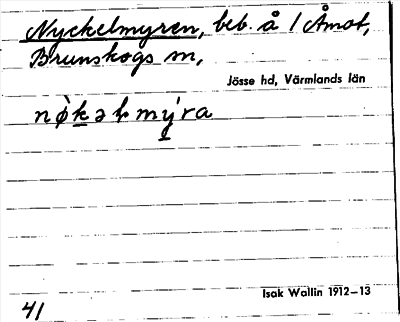 Nyckelmyren, beb. å 1 Åmot,
Brunskogs sn,
Jösse hd, Värmlands län
Isak Wallin 1912–13
41